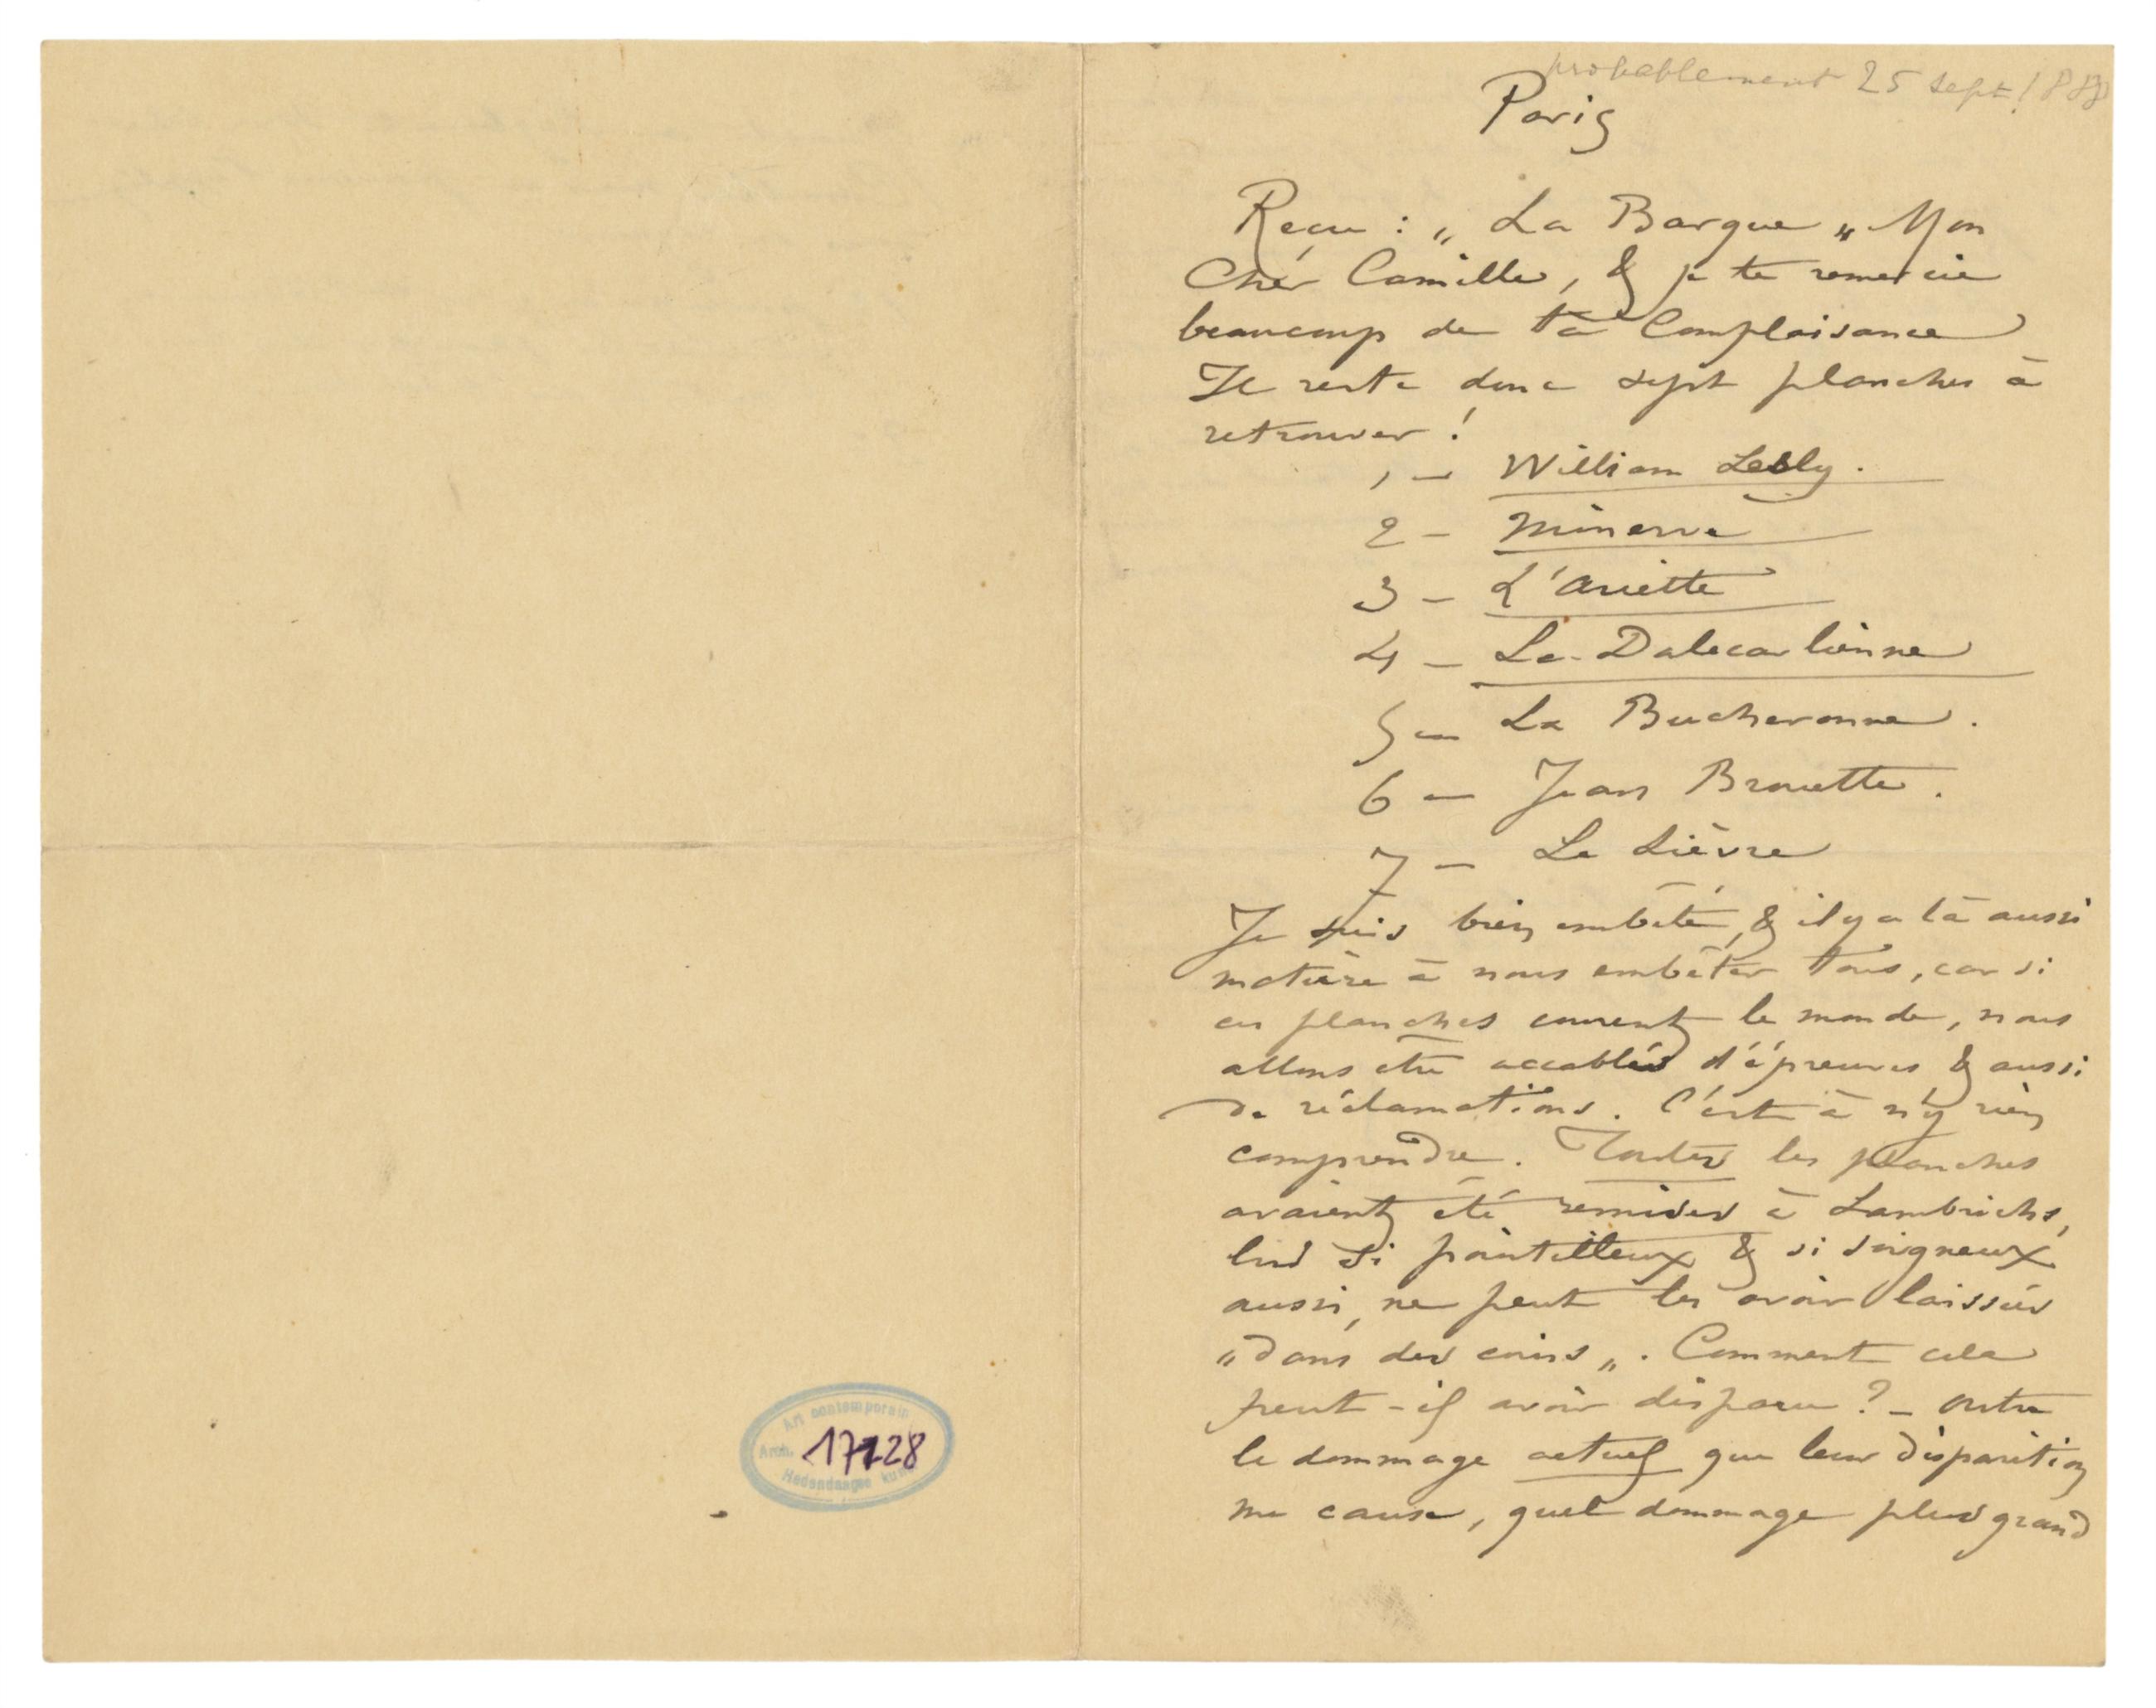 probablement 25 sept 188
Paris
Reçu : „ La Barque „ Mon
Cher Camille, & je te remercie
beaucoup de ta Complaisance
Il reste donc sept planches à
retrouver !
1 — William Lesly.
2 — Minerve
3 — L'Ariette
4 — La Dalecarlienne
5 — La Bucheronne.
6 — Jean Brouette.
7 — Le Lièvre
Je suis bien embêté, & il y a là aussi
matière à nous embêter tous, car si
ces planches courent le monde, nous
allons être accablés d'épreuves & aussi
de réclamations. C'est à n'y rien
comprendre. Toutes les planches
avaient été remises à Lambrichs,
lui si pointilleux & si soigneux
aussi, ne peut les avoir laissées
„ dans des coins „. Comment cela
peut-il avoir disparu ? — Outre
le dommage actuel que leur disparition
me cause, quel dommage plus grand
Art contemporain
Arch. 17728
Hedendaagse kunst